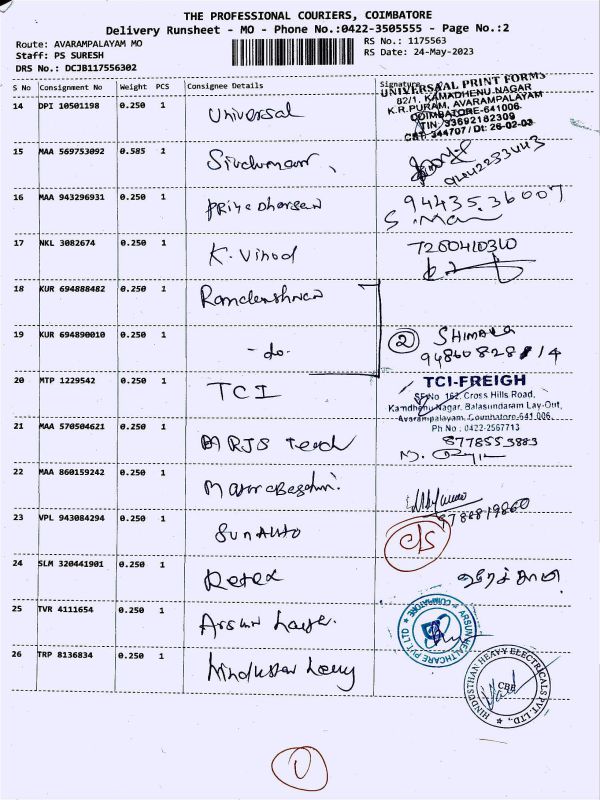 THE PROFESSIONAL COURIERS, COIMBATORE
Delivery Runsheet - MO - Phone No.:0422-3505555 - Page No.:2
Route: AVARAMPALAYAM MO
RS No.: 1175563
Staff: PS SURESH
RS Date: 24-May-2023
DRS No.: DCJB117556302
S No Consignment No Weight PCS Consignee Details Signature
14 DPI 10501198 0.250 1 Universal
UNIVERSAAL PRINT FORMS
82/1, KAMADHENU NAGAR
K.R.PURAM, AVARAMPALAYAM
COIMBATORE-641006
TIN: 33692182309
CST: 344707 / Dt: 26-02-03
15 MAA 569753092 0.585 1
16 MAA 943296931 0.250 1 Priya Dharsan
94435.36007
S. Mani
17 NKL 3082674 0.250 1 K. Vinod
7260410310
18 KUR 694888482 0.250 1
19 KUR 694890010 0.250 1 -do-
2 SHIMALA
20 MTP 1229542 0.250 1 TCI
TCI-FREIGH
SF.No 162, Cross Hills Road,
Kamdhenu Nagar, Balasundaram Lay-Out,
Avarampalayam, Coimbatore-641 006.
Ph No : 0422-2567713
21 MAA 570504621 0.250 1 MRJS Tech
8778553883
22 MAA 860159242 0.250 1
9788819860
23 VPL 943084294 0.250 1 Sun Auto
C/S
24 SLM 320441901 0.250 1 Retex
25 TVR 4111654 0.250 1
ARSUN HEALTHCARE PVT LTD * COIMBATORE *
26 TRP 8136834 0.250 1 Hindustan Heavy
HINDUSTHAN HEAVY ELECTRICALS PVT. LTD.,
CBE
1